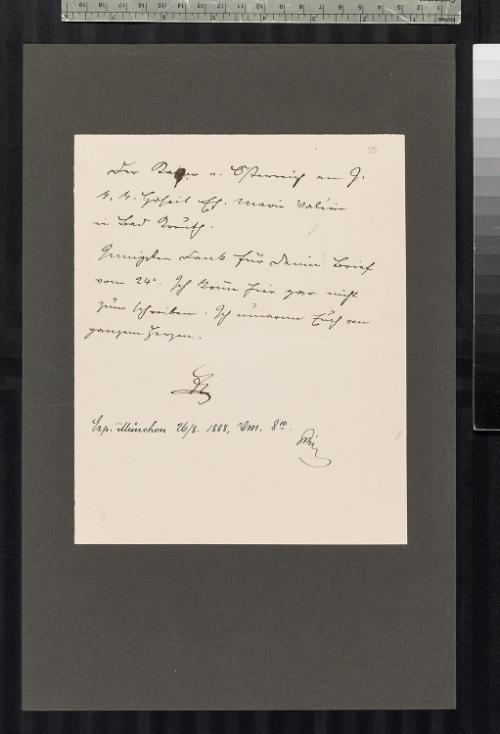 25
Der Kaiser v. Österreich an I.
K. K. Hoheit Eh. Marie Valerie
in Bad Kreuth.
Innigsten Dank für Deinen Brief
vom 24ᵗ. Ich komme hier gar nicht
zum Schreiben. Ich umarme Euch von
ganzem Herzen.
Exp. München 26/8. 1888, Vm. 8¹⁰.